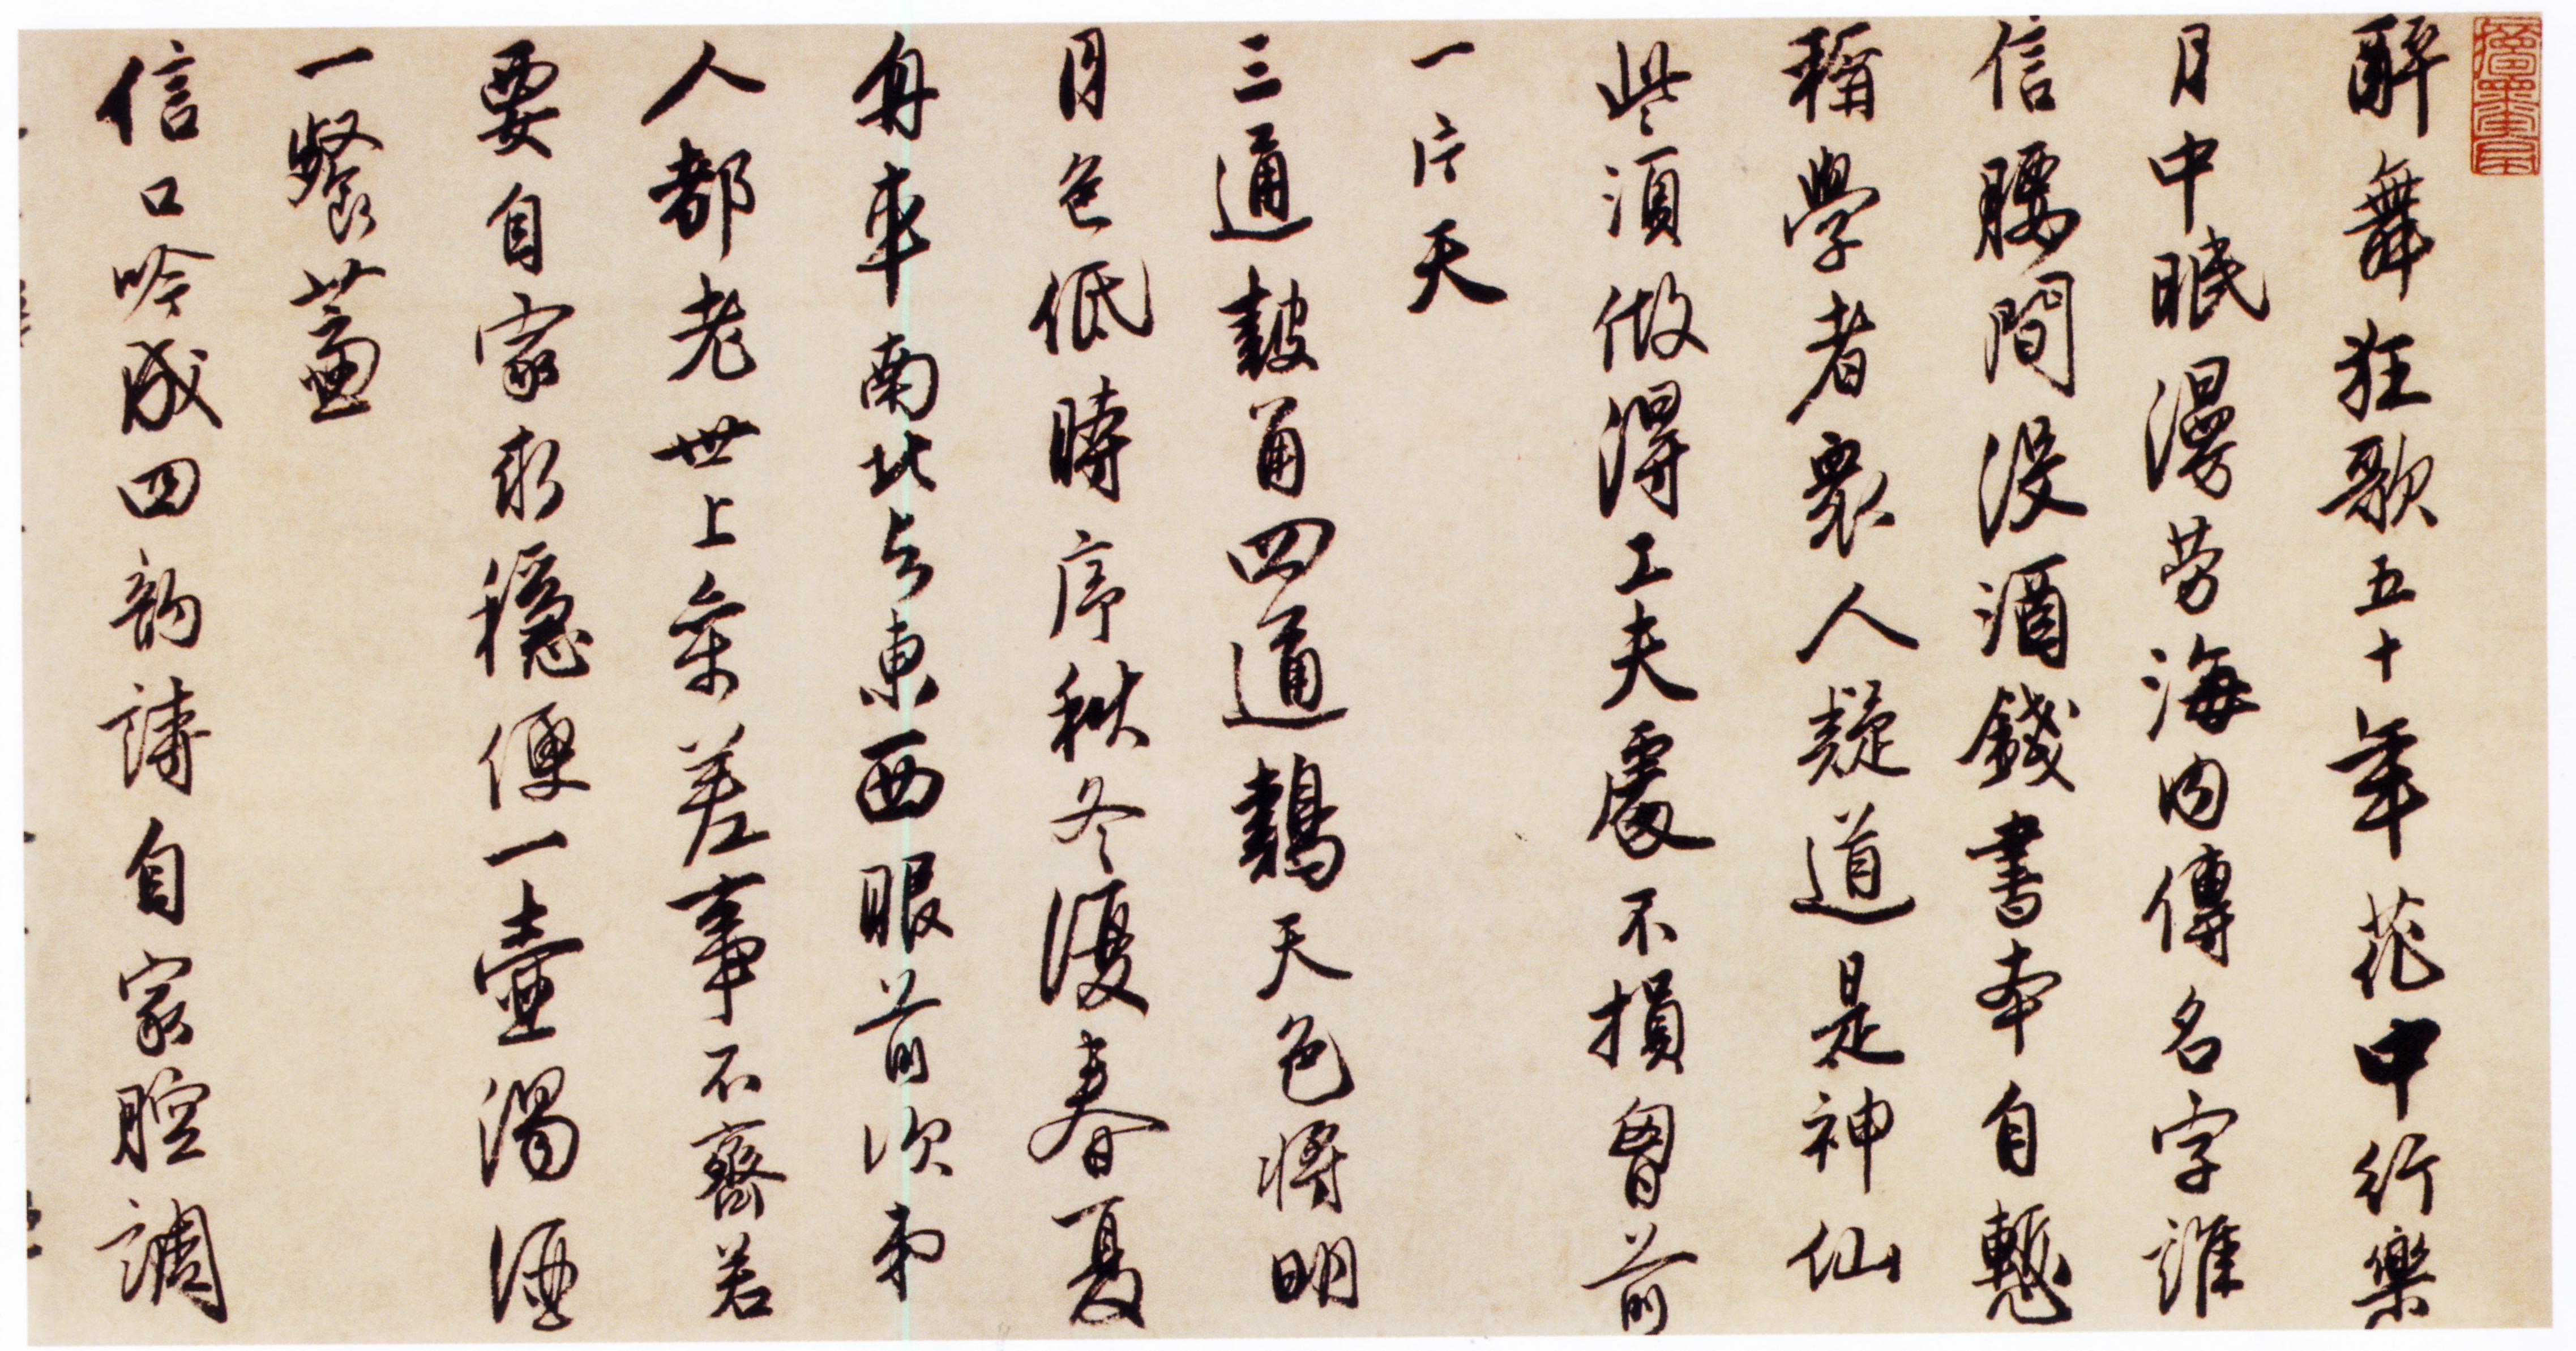 醉舞狂歌五十年花中行樂
月中眠漫勞海內傳名字誰
信腰間没酒錢書本自慙
稱學者衆人疑道是神仙
些須做得工夫處不損胷前
一片天
三通鼓角四通鷄天色將明
月色低時序秋冬復春夏
舟車南北与東西眼前次第
人都老世上參差事不齊若
要自家求穩便一壺濁酒
一餐虀
信口吟成四韵詩自家腔調